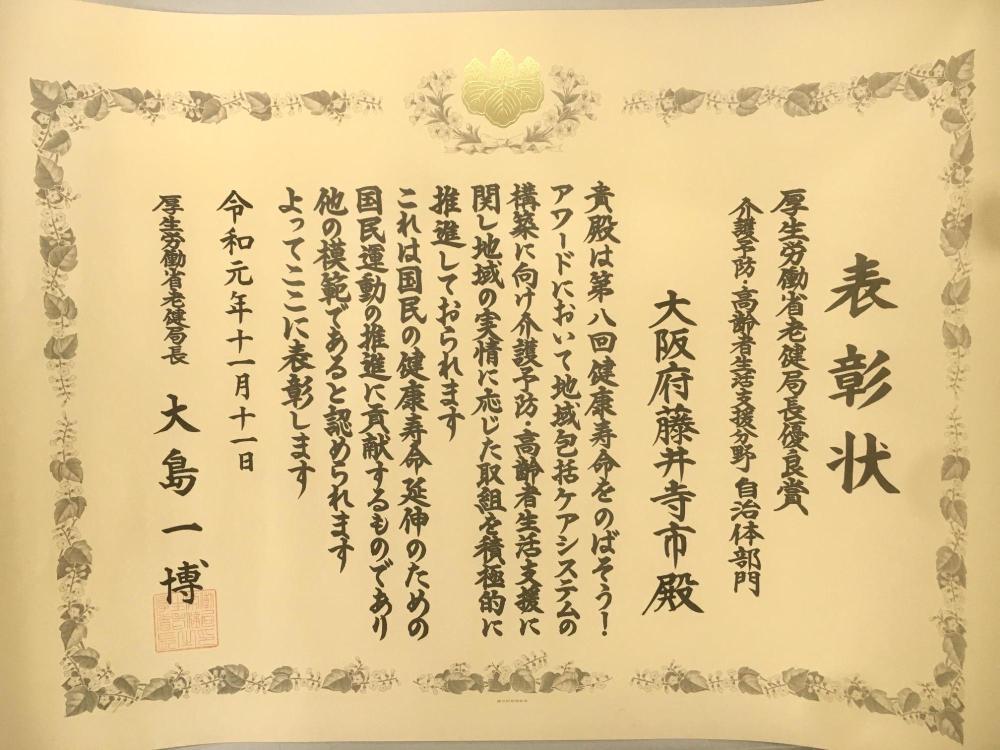 表彰状
厚生労働省老健局長優良賞
介護予防・高齢者生活支援分野 自治体部門
大阪府藤井寺市殿
貴殿は第八回健康寿命をのばそう!
アワードにおいて地域包括ケアシステムの
構築に向け介護予防・高齢者生活支援に
関し地域の実情に応じた取組を積極的に
推進しておられます
これは国民の健康寿命延伸のための
国民運動の推進に貢献するものであり
他の模範であると認められます
よってここに表彰します
令和元年十一月十一日
厚生労働省老健局長 大島一博